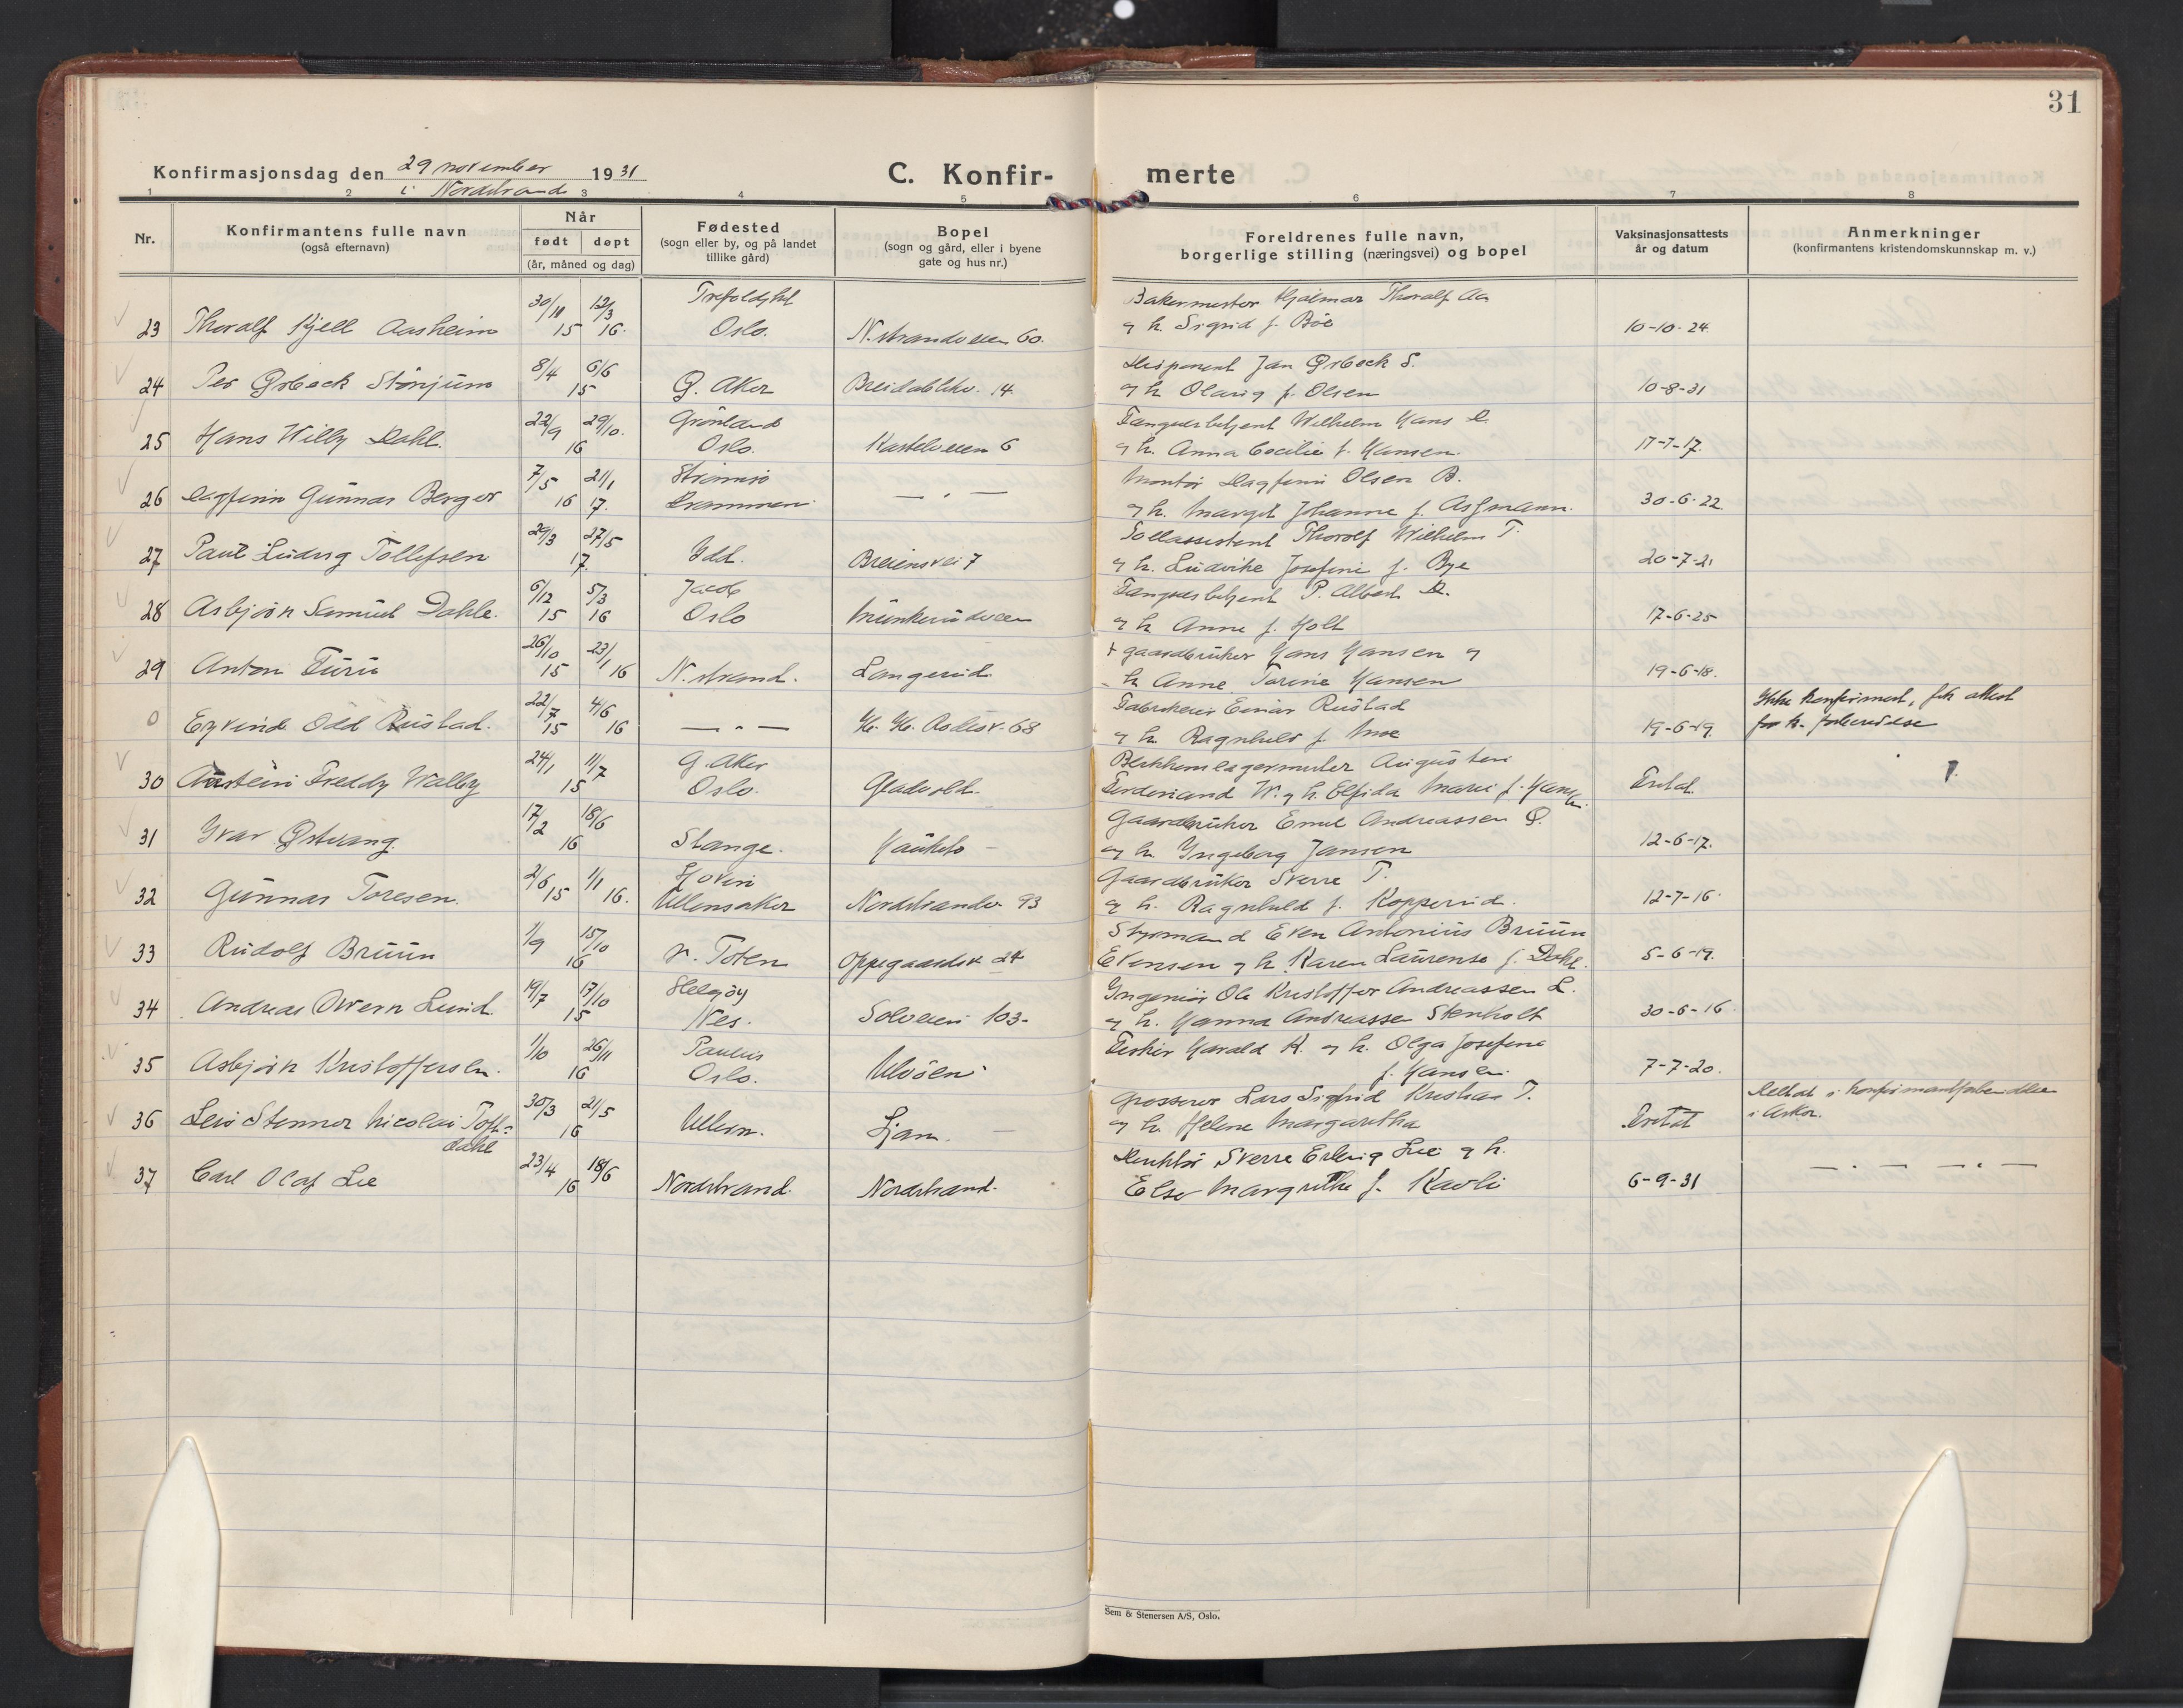 31
Konfirmasjonsdag den 29 november 1931
i Nordstrand
C. Konfir-
merte
1 2 3 4 5 6 7 8
Nr.
Konfirmantens fulle navn
(også efternavn)
Når
født døpt
(år, måned og dag)
Fødested
(sogn eller by, og på landet
tillike gård)
Bopel
(sogn og gård, eller i byene
gate og hus nr.)
Foreldrenes fulle navn,
borgerlige stilling (næringsvei) og bopel
Vaksinasjonsattests
år og datum
Anmerkninger
(konfirmantens kristendomskunnskap m. v.)
30/11 12/3 Trefoldighet Bakermester Hjalmar Thoralf Aa
23 Thoralf Kjell Aasheim 15 16. Oslo. N.strandveien 60. og h. Sigrid f. Böe 10-10-24
8/4 6/6 Disponent Jan Ørbeck S.
24 Per Ørbeck Störjum 15 Ø. Aker Breidablikv. 14. og h. Olavig f. Olsen 10-8-31
22/9 29/10. Grönland Fængselsbetjent Wilhelm Hans D.
25 Hans Willy Dahl. 16 Oslo. Kastelveien 6 og h. Anna Cecilie f. Hansen. 17-7-17.
7/5 21/1 Strömsö Montör Dagfinn Olsen B.
26 Dagfinn Gunnar Berger 16 17. Drammen — " — og h. Margit Johanne f. Assmann. 30-6-22.
29/3 27/5 Tollassistent Thorolf Wilhelm T.
27 Paul Ludvig Tollefsen 17. Idd. Breiensvei 7 og h. Ludvike Josefine f. Bye 20-7-21
6/12 5/3 Jacob Fængselsbetjent P. Albert D.
28 Asbjörn Samuel Dahle. 15 16 Oslo Munkerudveien og h. Anne f. Holt 17-6-25
26/10 23/1 + gaardbruker Hans Hansen og
29 Anton Furu 15 16 N.strand. Langerud. h. Anne Torine Hansen 19-6-18.
22/7 4/6 Fabrikeier Einar Rustad Ikke konfirmert, fik attest
0 Eyvind Odd Rustad. 15 16 — " — H. H. Aasesv. 68 og h. Ragnhild f. Moe 19-6-19. for k. forberedelse
24/1 11/7 G. Aker Blikkenslagermester Augusten
30 Arstein Freddy Walby 15 Oslo. Gladvold. Ferdinand W. og h. Elfida Marie f. Hansen. Fritat.
17/2 18/6 Gaardbruker Emil Andreassen Ø.
31 Ivar Østvang. 16 Stange. Hauketo og h. Ingeborg Jansen 12-6-17.
2/6 1/1 Hovin Gaardbruker Sverre T.
32 Gunnar Toresen. 15 16. Ullensaker Nordstrandv. 93 og h. Ragnhild f. Kopperud. 12-7-16.
1/9 15/10 Styrmand Even Antonius Bruun
33 Rudolf Bruun 16 V. Toten Oppegaardsv. 24 Evensen og h. Karen Laurense f. Dahl. 5-6-19.
19/7 17/10 Helgöy Ingeniör Ole Kristoffer Andreassen L.
34 Andreas Owern Lund. 15 Nes. Solveien 103. og h. Hanna Andreasse Stenholt 30-6-16
1/10 26/11 Paulus Fisker Harald K. og h. Olga Josefine
35 Asbjörn Kristoffersen. 16 Oslo. Ulvöen. f. Hansen. 7-7-20.
30/3 21/5 Grosserer Lars Sigfrid Kristian T. Deltat i konfirmantforberedelsen
36 Leiv Stenner Nicolai Toft= 16 Ullern. Ljan. og h. Helene Margaretha Fritat i Asker.
dahl
23/4 18/6 Direktör Sverre Erling Lie og h. — " — " —
37 Carl Olaf Lie 16 Nordstrand. Nordstrand. Else Margrethe f. Kavli 6-9-31
Sem & Stenersen A/S, Oslo.